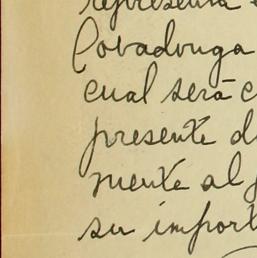 representa
Covadonga
cual será c
presente d
mente al p
su import